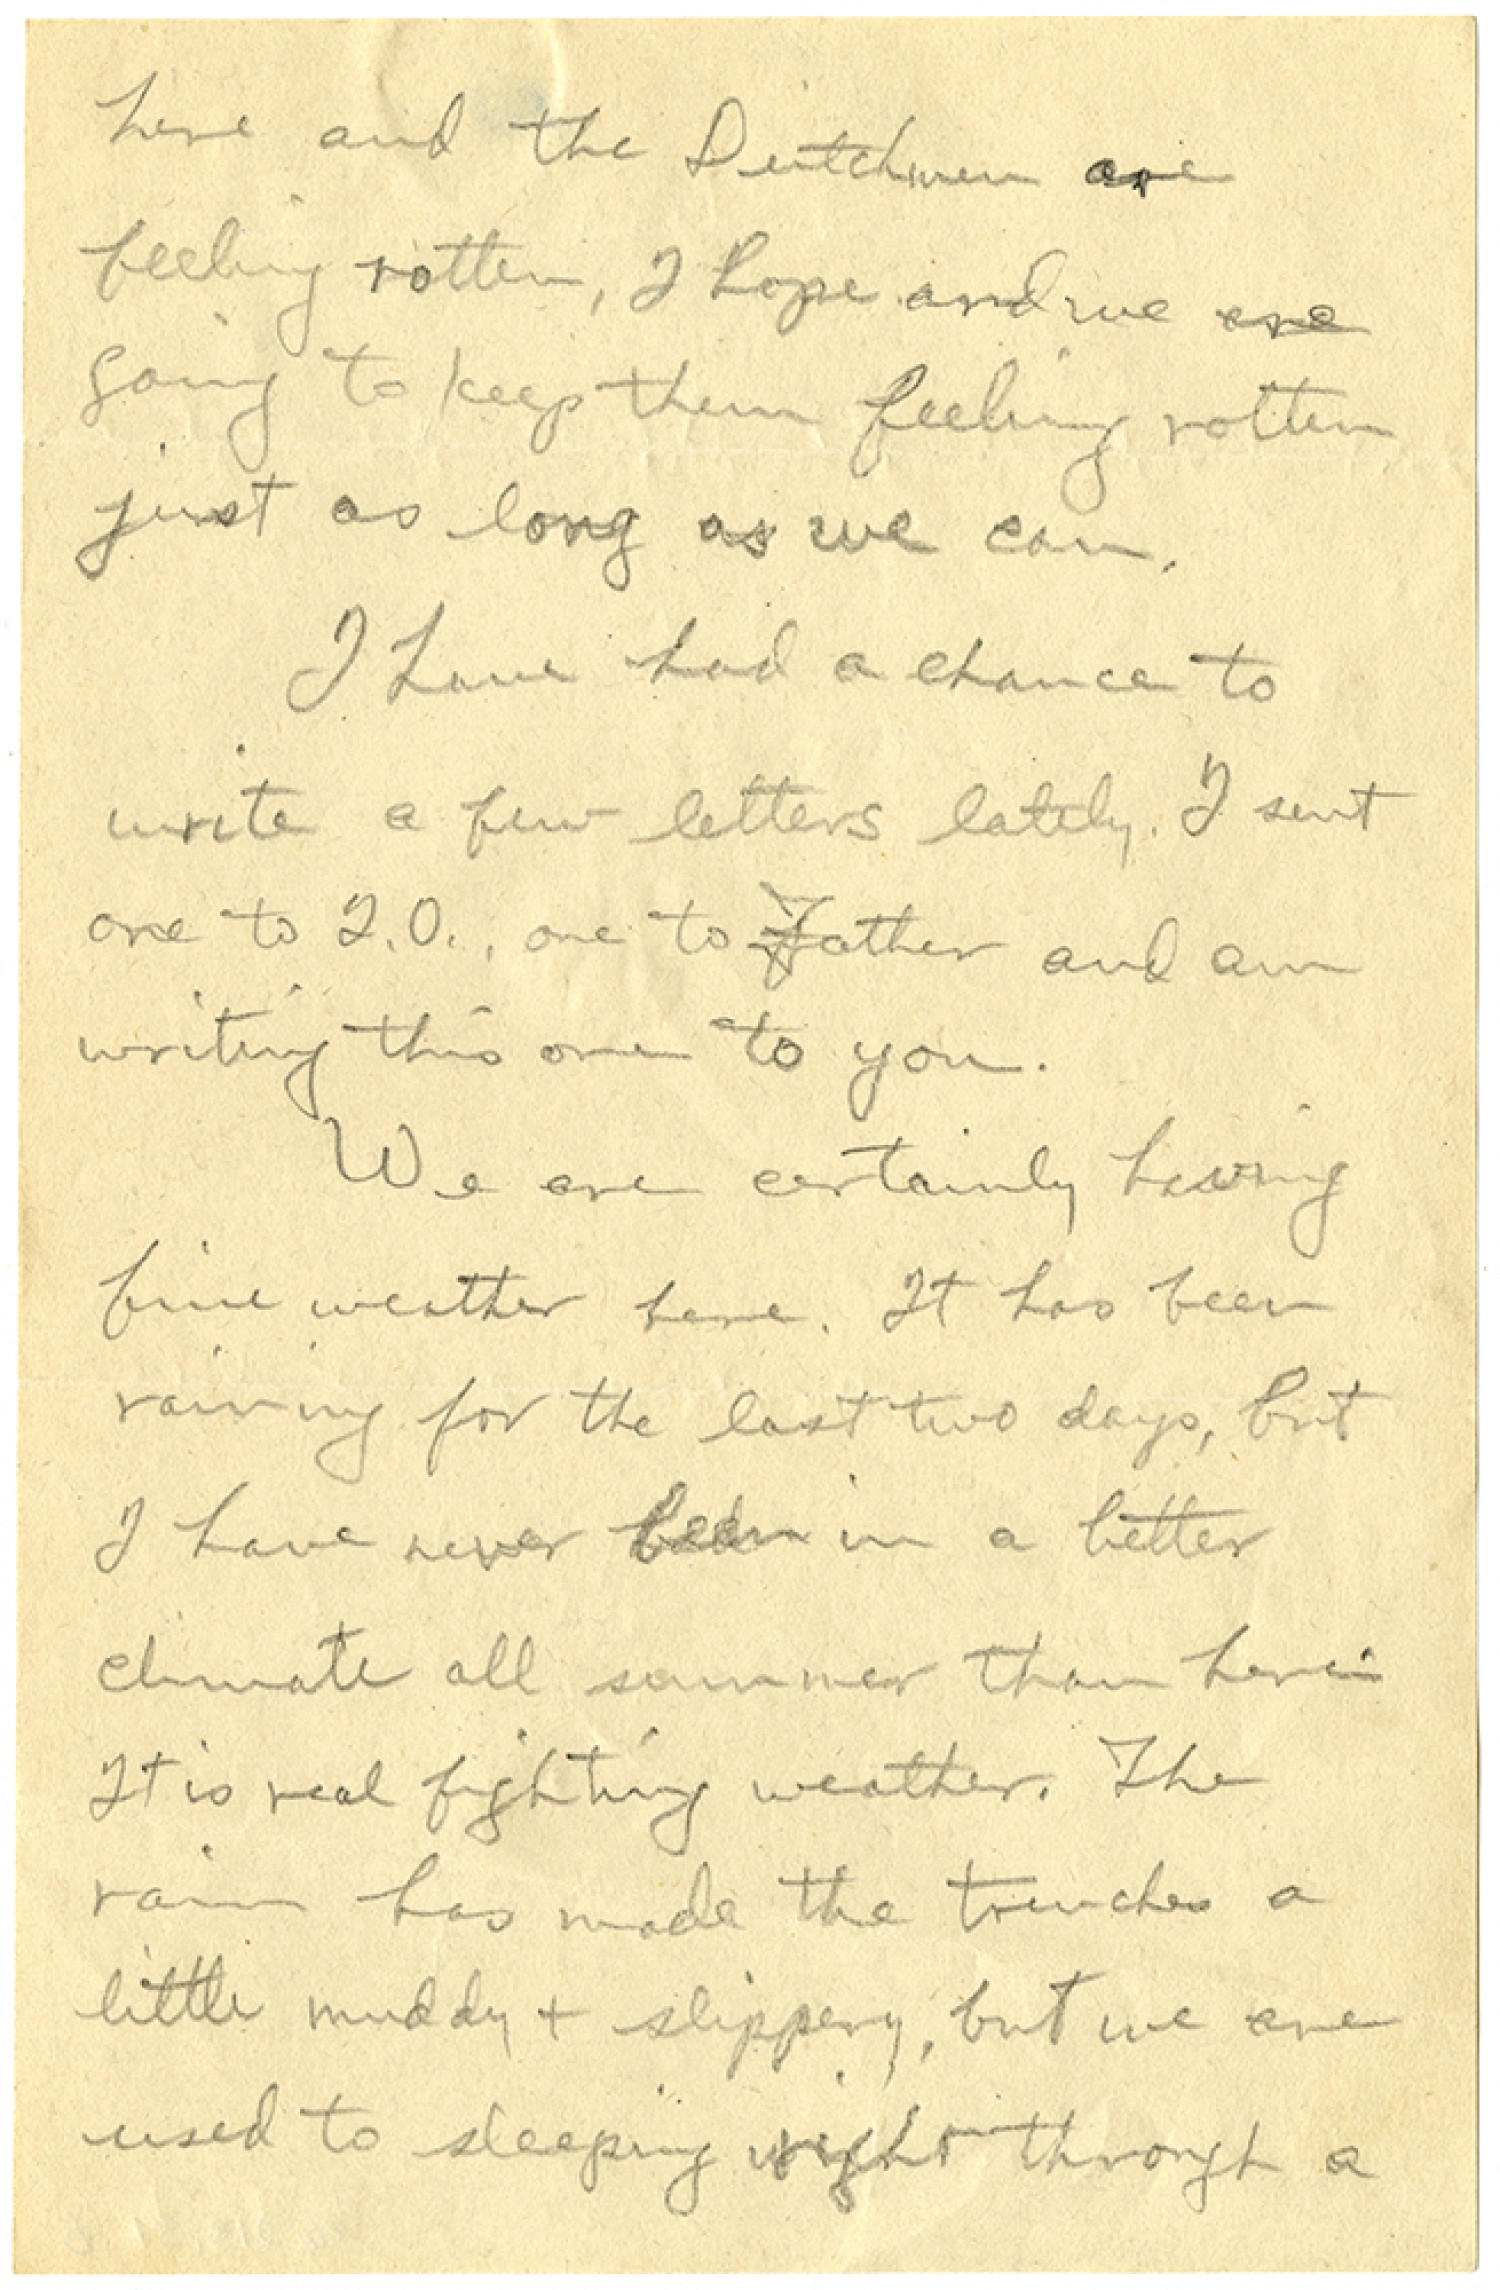 here and the Dutchmen are
feeling rotten, I hope and we are
going to keep them feeling rotten
just as long as we can.
I have had a chance to
write a few letters lately. I sent
one to I.O., one to Father and am
writing this one to you.
We are certainly having
fine weather here. It has been
raining for the last two days, but
I have never been in a better
climate all summer than here.
It is real fighting weather. The
rain has made the trenches a
little muddy + slippery, but we are
used to sleeping right through a